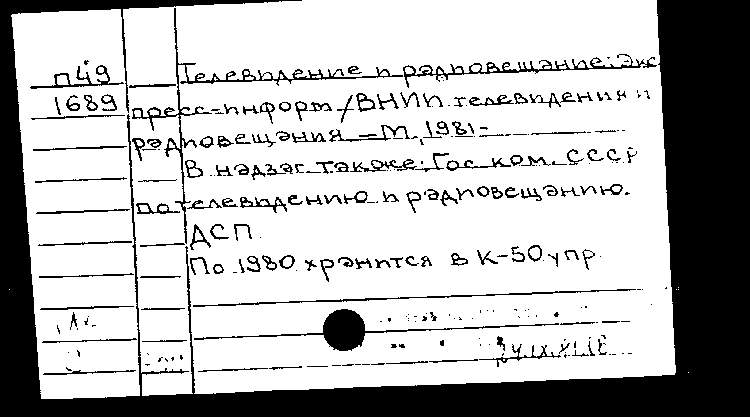 П49 Телевидение и радиовещание: Экс
1689 пресс-информ/ВНИИ телевидения и
радиовещания. — М., 1981-
В надзаг. также: Гос. ком. СССР
по телевидению и радиовещанию.
ДСП.
По 1980 хранится в К-50 упр.